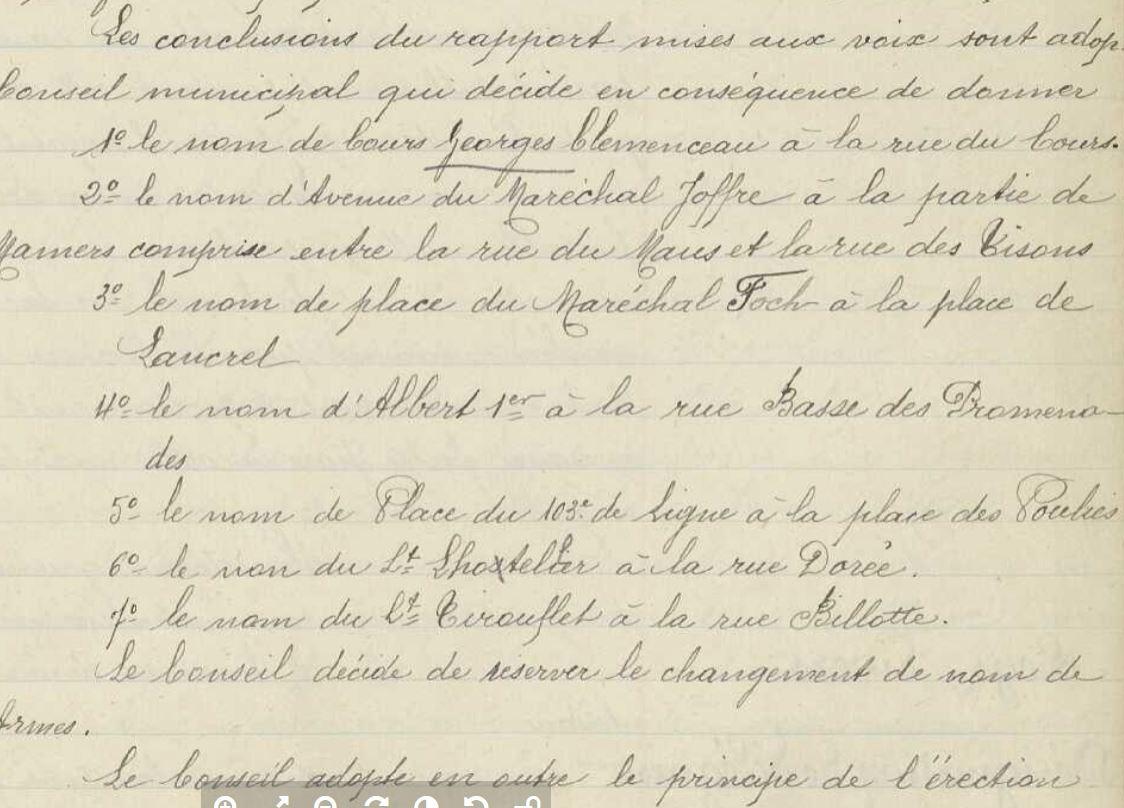 Les conclusions du rapport mises aux voix sont adop
Conseil municipal qui décide en conséquence de donner
1º le nom de Cours Georges Clemenceau à la rue du Cours.
2º le nom d'Avenue du Maréchal Joffre à la partie de
Mamers comprise entre la rue du Mans et la rue des Tisons
3º le nom de place du Maréchal Foch à la place de
Lancrel
4º le nom d'Albert 1er à la rue Basse des Promena-
des
5º le nom de Place du 103e de Ligne à la place des Poulies
6º le nom du Lt à la rue Dorée.
7º le nom du Lt Tirouflet à la rue Billotte.
Le Conseil décide de réserver le changement de nom de
Armes.
Le Conseil adopte en outre le principe de l'érection